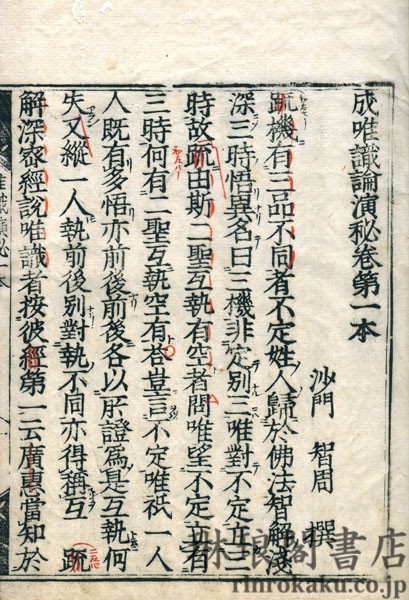 成唯識論演秘卷第一本
沙門 智周 撰
疏機有三品不同者不定姓人歸於佛法智解淺
深三時悟異名曰三機非定別三唯對不定立三
時故疏由斯二聖互執有空者問唯望不定立有
三時何有二聖互執空有荅豈言不定唯祇一人
人既有多悟亦前後前後各以所證爲是互執何
失又縱一人執前後別對執不同亦得稱互 疏
解深密經說唯識者按彼經第一云廣惠當知於
唯識演秘一本
琳琅閣書店
rinrokaku.co.jp